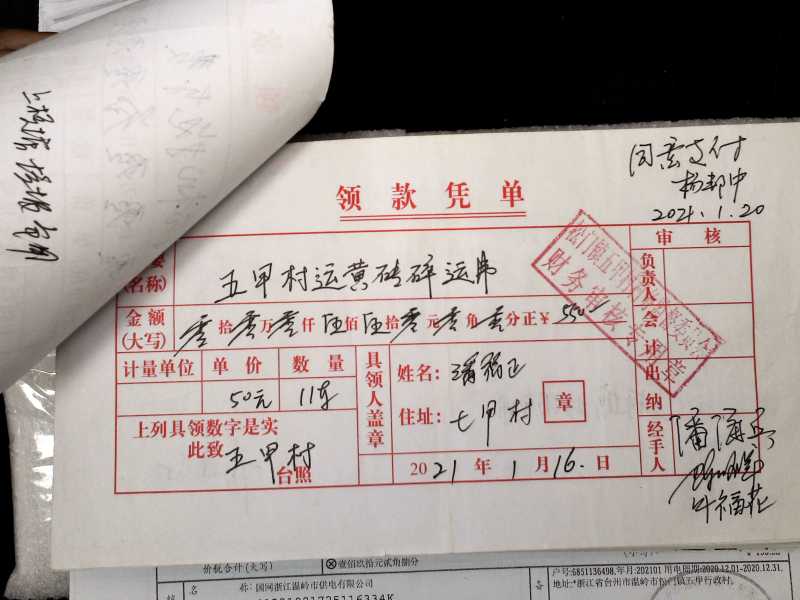 同意支付
杨邦中
2021.1.20
领款凭单
(名称)
五甲村运黄砖碎运费
审核
金额
(大写)
零拾零万零仟伍佰伍拾零元零角零分正¥550
财务审核专用章
负责人
会计
出纳
经手人
计量单位 单价 数量
50元 11车
具领人盖章
姓名:
住址: 七甲村 章
上列具领数字是实
此致 五甲村
台照
2021年1月16.日
潘海兵
叶福花
价税合计(大写) ⊗壹佰玖拾元贰角捌分
称: 国网浙江温岭市供电有限公司
户号:6851136498,年月:202101 用电周期:2020.12.01-2020.12.31.
地址:*浙江省台州市温岭市松门镇五甲行政村.